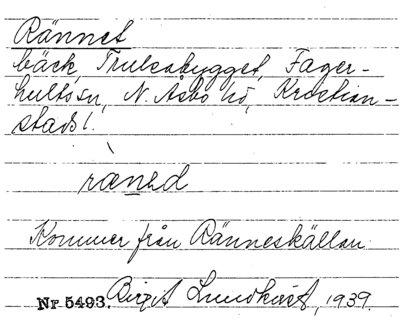 Rännet
bäck, Trulsabygget, Fager-
hults sn, N. Åsbo hd, Kristian-
stads l.
Kommer från Ränneskällan.
Nr 5493. Birgit Lundkvist, 1939.